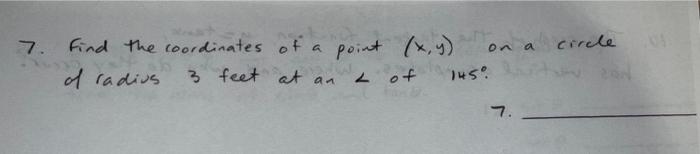 7. Find the coordinates of a point (x,y) on a circle
of radius 3 feet at an ∠ of 145°.
7.